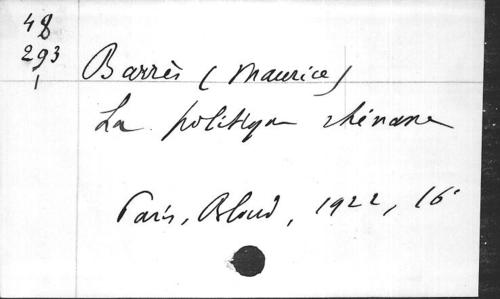 48
293
1
Barrès (Maurice)
La politique rhénane
Paris, Bloud, 1922, 16°